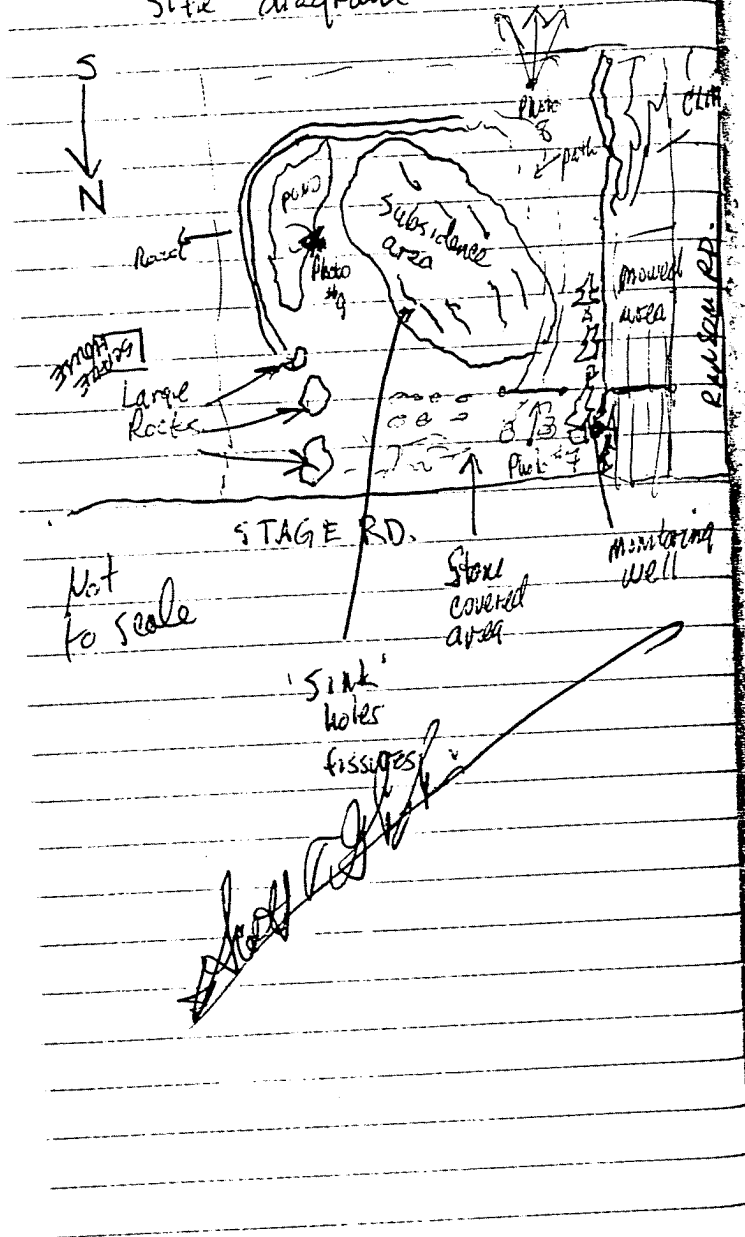 Site diagram
S
N
Photo
8
path
Cliff
pond
Road
Photo
#9
Subsidence
area
mowed
area
RANSOM RD.
STONE
HOUSE
Large
Rocks
Photo #7
STAGE RD.
Not
to scale
Stone
covered
area
monitoring
well
'Sink'
holes
fissures
Scott